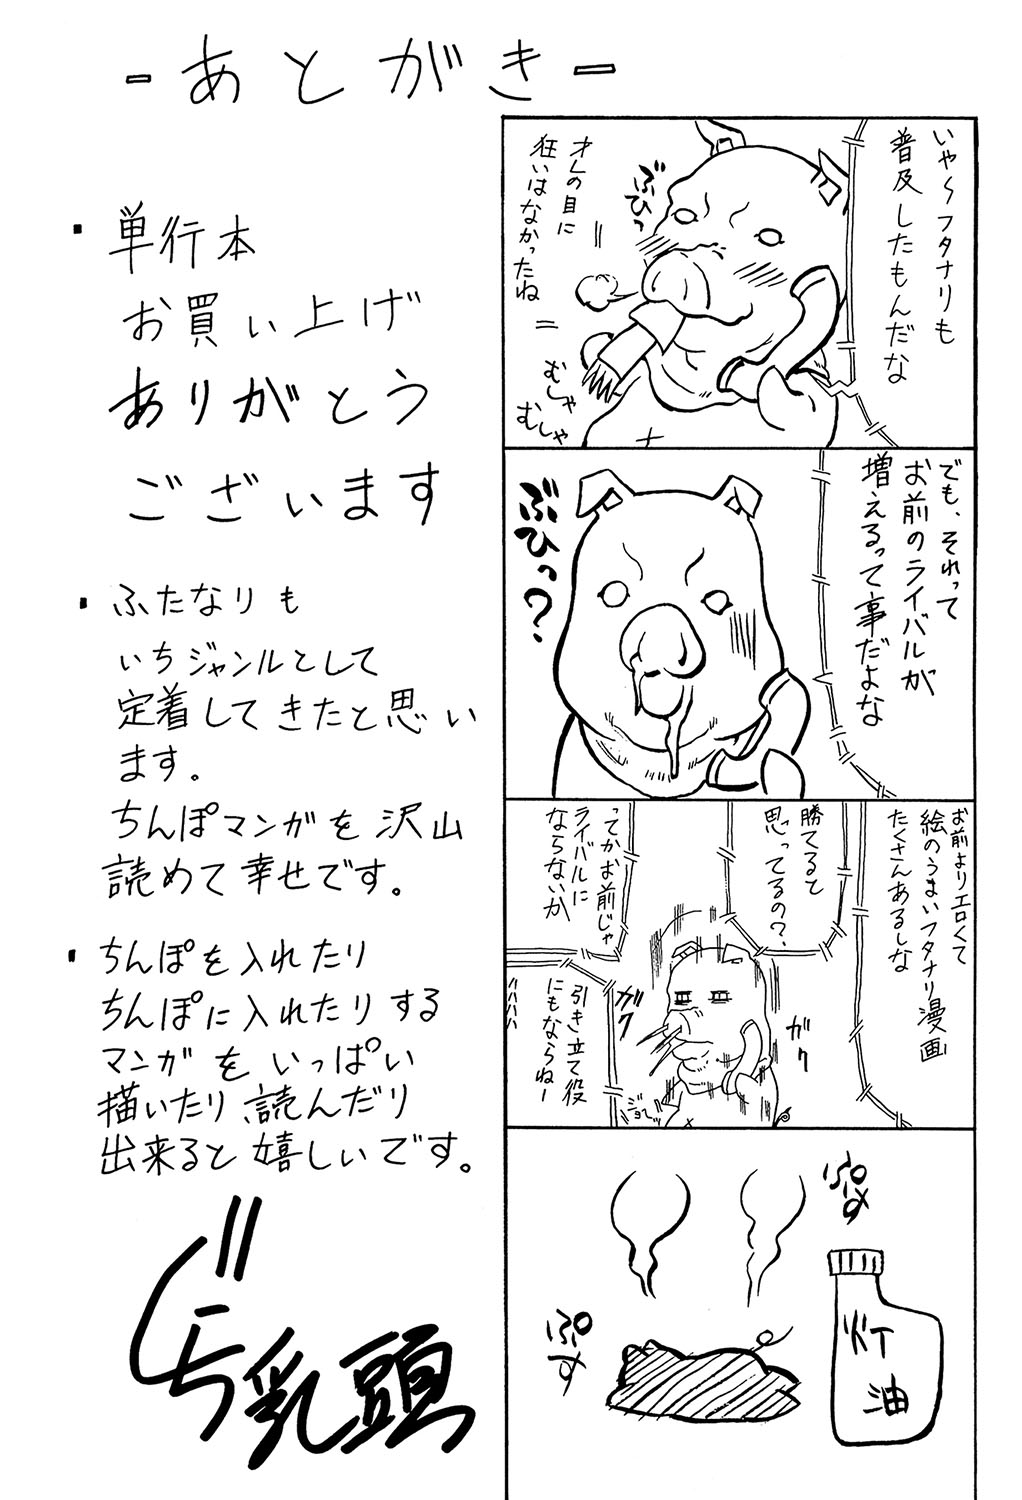 -あとがき-
いや〜フタナリも
普及したもんだな
オレの目に
狂いはなかったね
ぶひっ
むしゃ
むしゃ
でも、それって
お前のライバルが
増えるって事だよな
ぶひっ?
お前よりエロくて
絵のうまいフタナリ漫画
たくさんあるしな
勝てると
思ってるの?
ってかお前じゃ
ライバルに
ならないか
引き立て役
にもならねー
ガク
ガク
ぷす
ぷす
灯油
・単行本
お買い上げ
ありがとう
ございます
・ふたなりも
いちジャンルとして
定着してきたと思い
ます。
ちんぽマンガを沢山
読めて幸せです。
・ちんぽを入れたり
ちんぽに入れたりする
マンガをいっぱい
描いたり、読んだり
出来ると嬉しいです。
乳頭